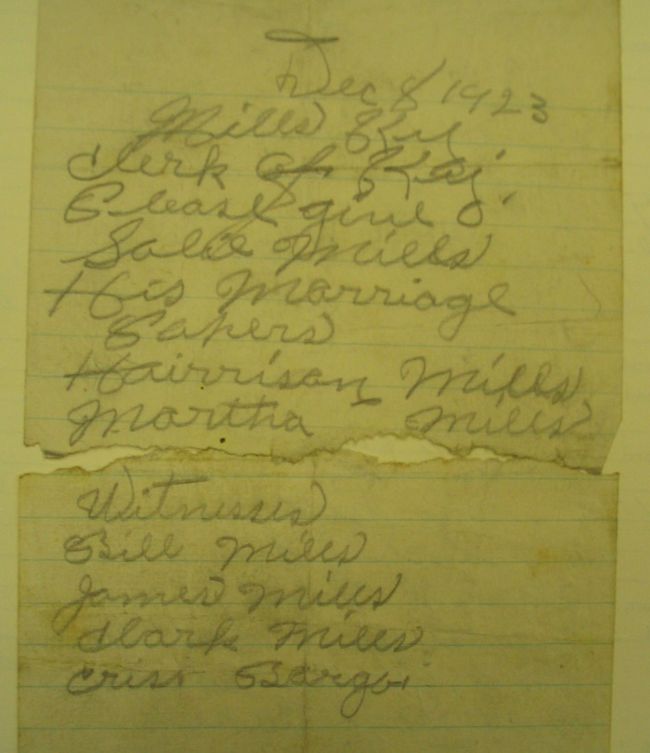 Dec 8 1923
Mills Ky
Clerk of
Please give
Mills
His Marriage
Papers
Hairrison Mills
Martha Mills
Witnesses
Bill Mills
James Mills
Clark Mills
Criss Bargo